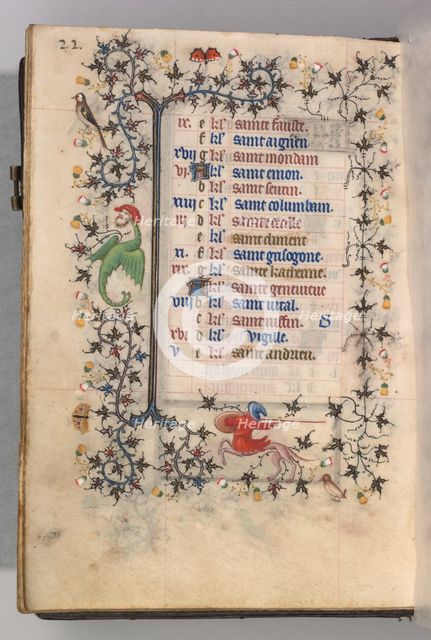 22.
ix. e kl' sainte fauste.
f kl' saint aignien
xvij g kl' saint mondain
vj. A kl' saint emon.
b kl' saint seurin.
xiiij c kl' saint columbain.
iij d kl' sainte cecille
e kl' saint climent
xi. f kl' saint grisogone.
xix. g kl' sainte katherine.
A kl' sainte genevieve
viij b kl' saint vital.
c kl' saint ruffin. 8
xvi d kl' vigille.
v e kl' saint andrieu.
Heritage
Heritage
Heritage
Heritage